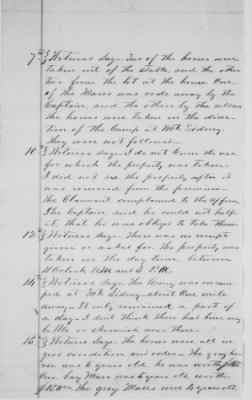 7th } Witness says - Two of the horses were
taken out of the stable, and the other
two from the lot at the house. One
of the Mares was rode away by the
Captain, and the others by the
the horses were taken in the direc-
tion of the Camp at Mt. Sidney.
They were not followed -
10th } Witness says - I do not know the use
for which the property was taken -
I did not see the property after it
was removed from the premises -
The Claimant complained to the officer,
The Captain said he could not help
it, that he was obliged to take them.
12th } Witness says - There was no receipt
given or asked for. The property was
taken in the day time, between
11 O'clock A.M. and 3 P.M.
14th } Witness says The Army was encam-
ped at Mt. Sidney - about One mile
away - It only remained a part of
a day - I don't think there had been any
battle or skirmish near there -
15th } Witness says The horses were all in
good condition and order - The gray hor
se was 6 years old, he was worth
One bay Mare was 6 years old worth
$150.00 The grey Mares were 4 years old